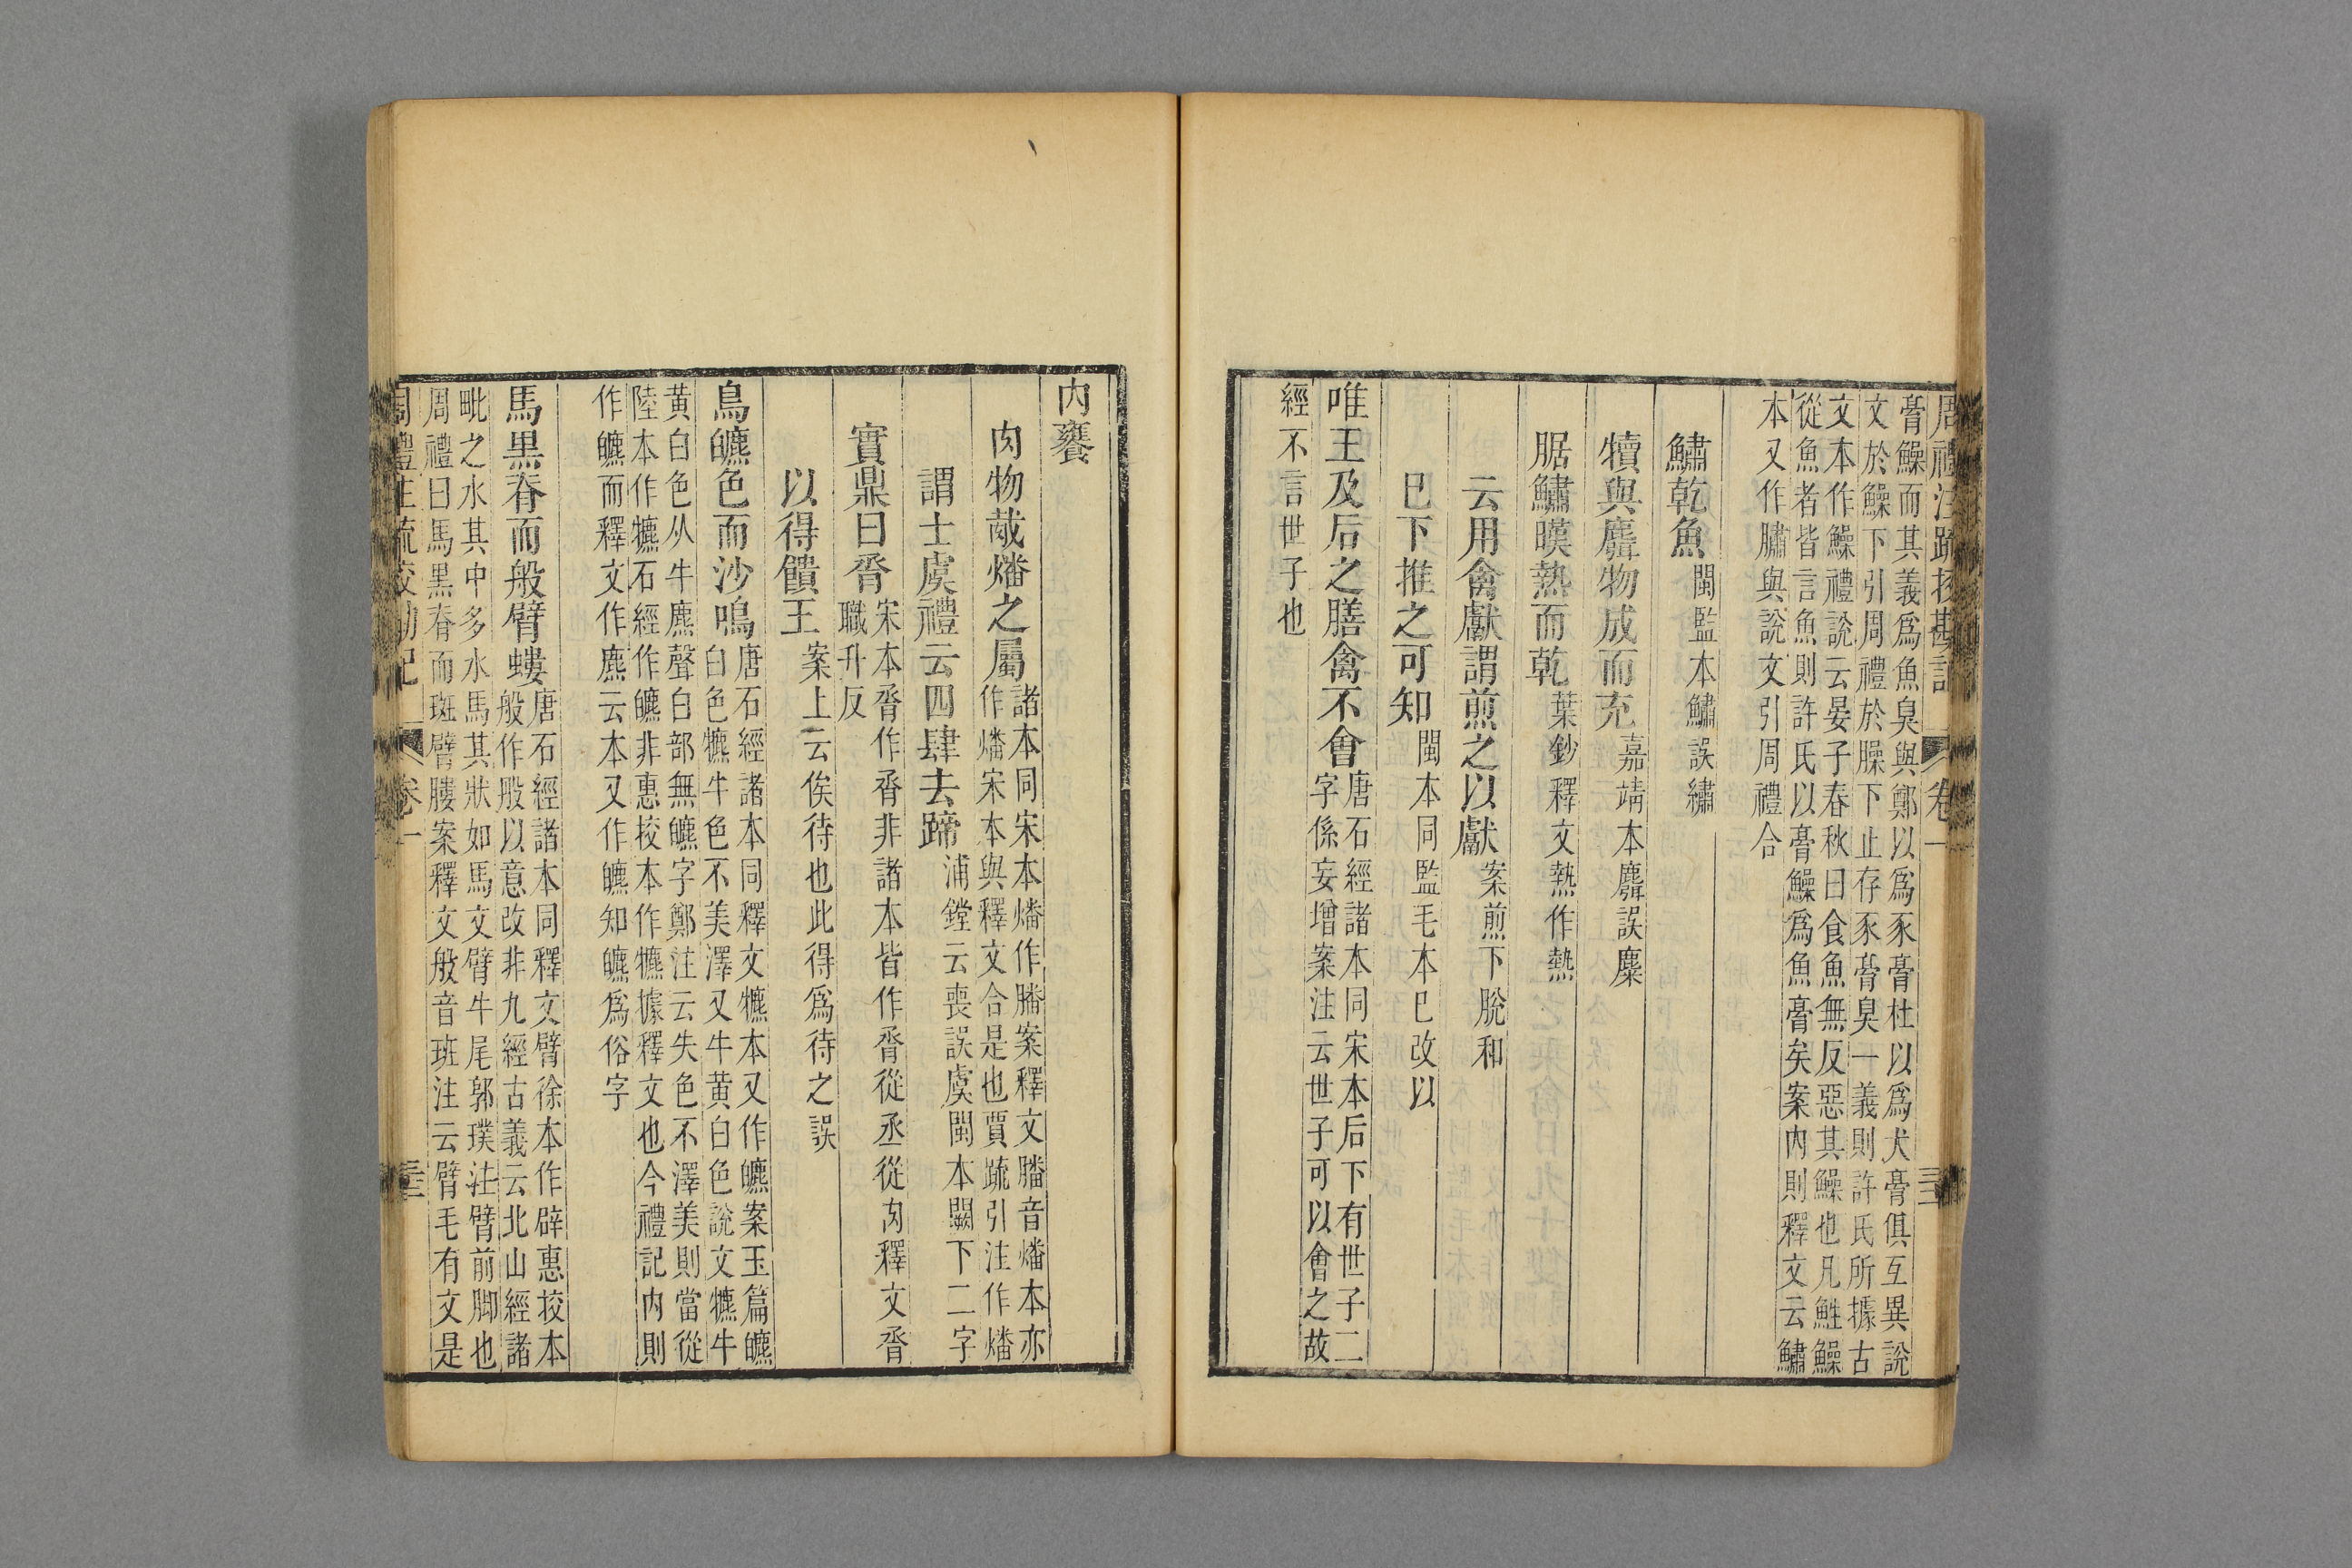 周禮注疏挍勘記 卷一 三三
膏鱢而其義爲魚臭與鄭以爲豕膏杜以爲犬膏俱互異說
文於鱢下引周禮於臊下止存豕膏臭一義則許氏所據古
文本作鱢禮說云晏子春秋曰食魚無反惡其鱢也凡鮏鱢
從魚者皆言魚則許氏以膏鱢爲魚膏矣案內則釋文云鱐
本又作臑與說文引周禮合
鱐乾魚閩監本鱐誤繡
犢與麛物成而充嘉靖本麛誤麋
腒鱐暵熱而乾葉鈔釋文熱作熱
云用禽獻謂煎之以獻案煎下脫和
巳下推之可知閩本同監毛本巳改以
唯王及后之膳禽不會唐石經諸本同宋本后下有世子二
字係妄增案注云世子可以會之故
經不言世子也
內饔
肉物胾燔之屬諸本同宋本燔作膰案釋文膰音燔本亦
作燔宋本與釋文合是也賈疏引注作燔
謂士虞禮云四肆去蹄浦鏜云喪誤虞閩本闕下二字
實鼎曰脀宋本脀作脀非諸本皆作脀從丞從肉釋文脀
職升反
以得饋王案上云俟待也此得爲待之誤
鳥皫色而沙鳴唐石經諸本同釋文犥本又作皫案玉篇皫
白色犥牛色不美澤又牛黃白色說文犥牛
黃白色从牛麃聲白部無皫字鄭注云失色不澤美則當從
陸本作犥石經作皫非惠挍本作犥據釋文也今禮記內則
作皫而釋文作麃云本又作皫知皫爲俗字
馬黑脊而般臂螻唐石經諸本同釋文臂徐本作辟惠挍本
般作股以意改非九經古義云北山經諸
毗之水其中多水馬其狀如馬文臂牛尾郭璞注臂前脚也
周禮曰馬黑脊而斑臂膢案釋文般音班注云臂毛有文是
周禮注疏挍勘記 卷一 三三